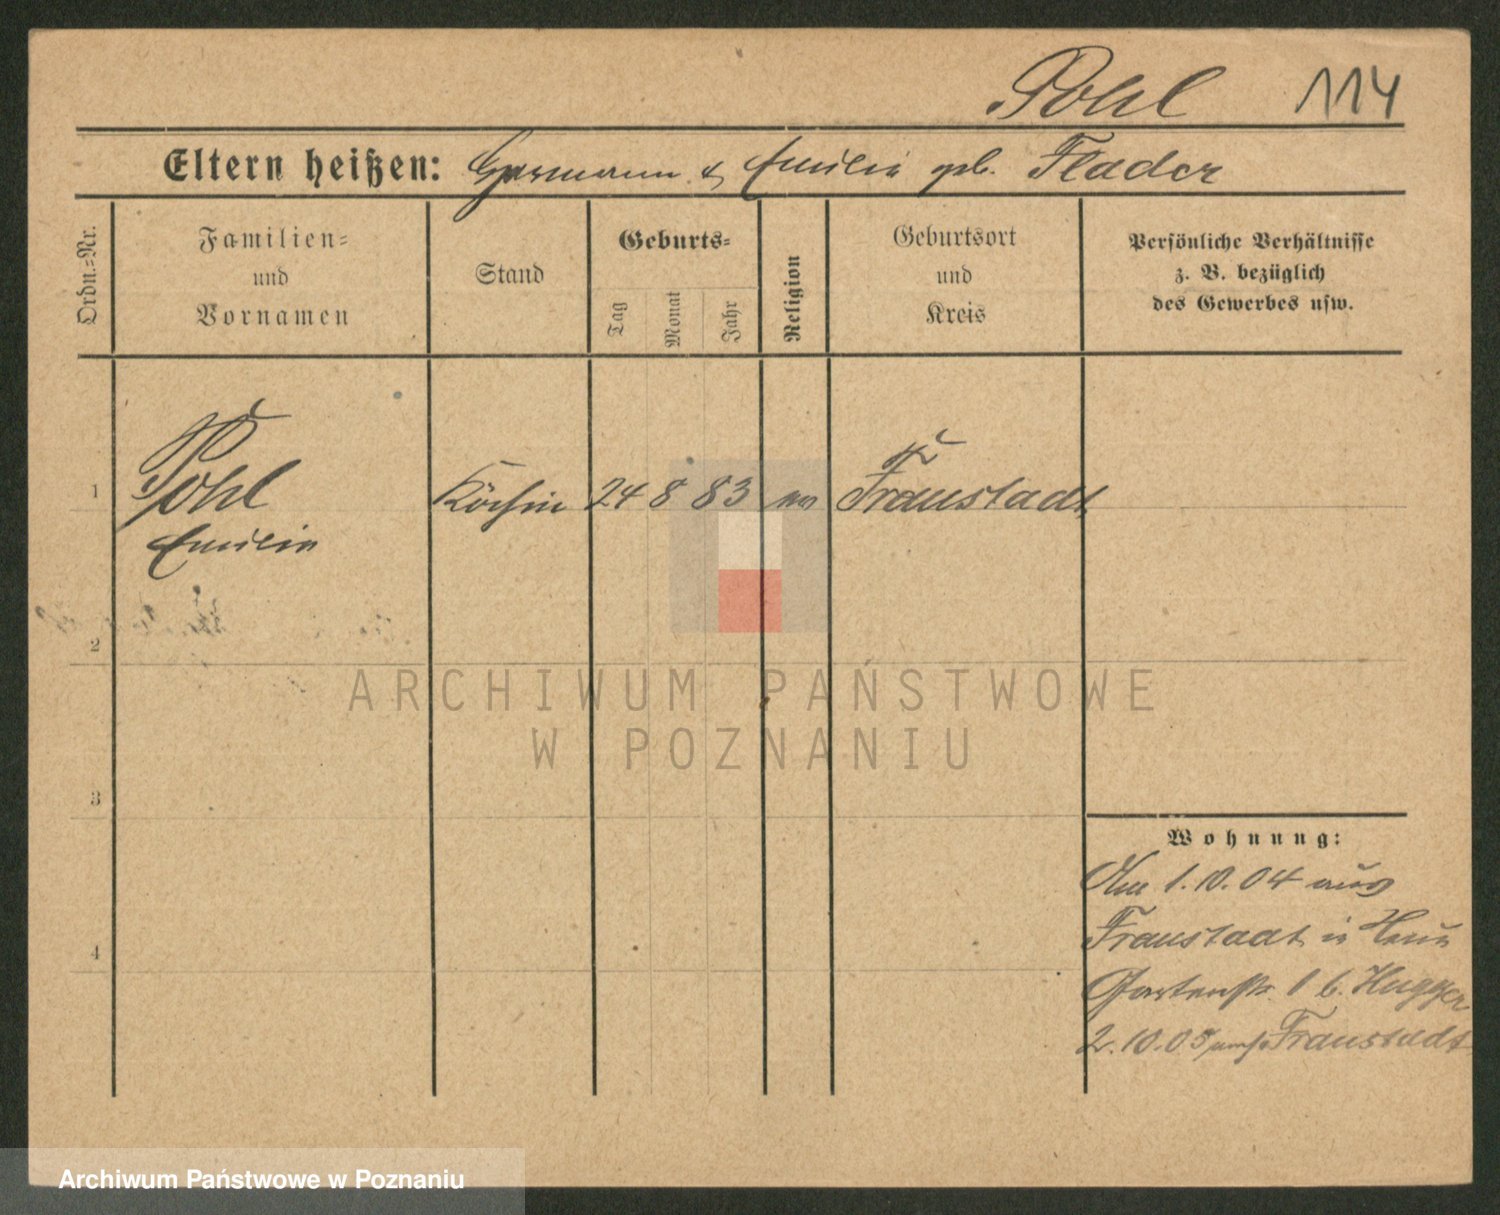 Pohl 114
Eltern heißen: Hermann & Emilie geb. Flader
Ordn.-Nr.
Familien-
und
Vornamen
Stand
Geburts-
Tag
Monat
Jahr
Religion
Geburtsort
und
Kreis
Persönliche Verhältnisse
z. B. bezüglich
des Gewerbes usw.
1 Pohl Köchin 24 8 83 Fraustadt
Emilie
2
3
4
Wohnung:
Am 1.10.04 aus
Fraustadt in
Gartenstr. 1 b. Hugger
2.10.05 Fraustadt
ARCHIWUM PAŃSTWOWE
W POZNANIU
Archiwum Państwowe w Poznaniu